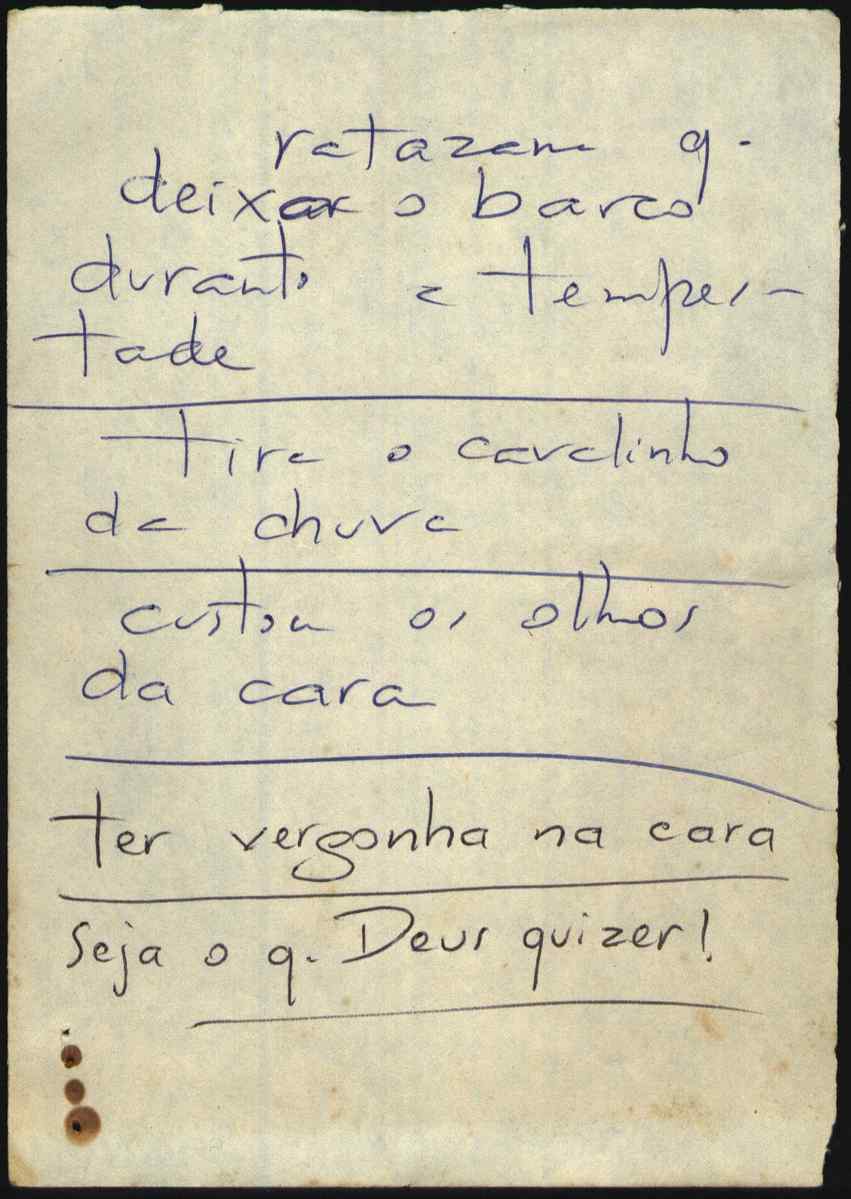 ratazana q.
deixar o barco
durante a tempes-
tade
tire o cavalinho
da chuva
custou os olhos
da cara
ter vergonha na cara
seja o q. Deus quizer!